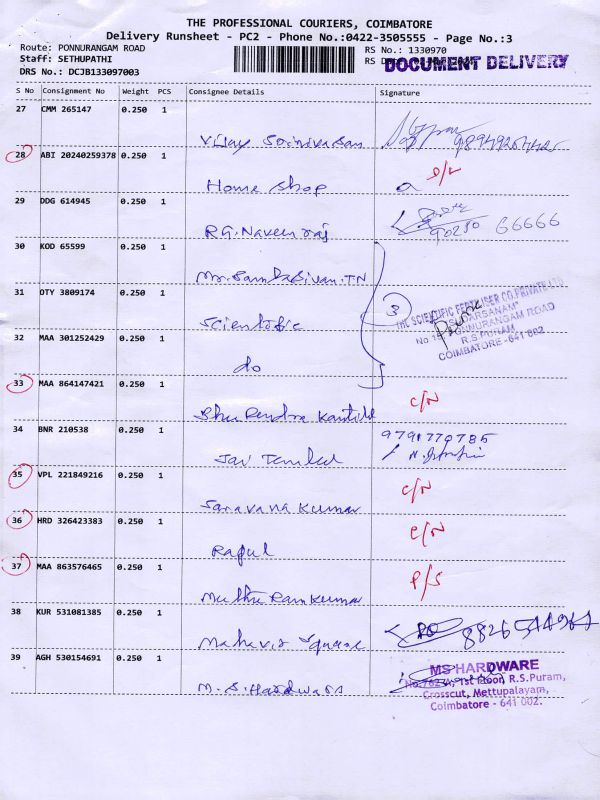 THE PROFESSIONAL COURIERS, COIMBATORE
Delivery Runsheet - PC2 - Phone No.:0422-3505555 - Page No.:3
Route: PONNURANGAM ROAD
Staff: SETHUPATHI
DRS No.: DCJB133097003
RS No.: 1330970
RS
DOCUMENT DELIVERY
S No Consignment No Weight PCS Consignee Details Signature
27 CMM 265147 0.250 1
Vijay Srinivasan
28 ABI 20240259378 0.250 1
Home Shop D/L
29 DDG 614945 0.250 1
RG. Naveen raj 90250 66666
30 KOD 65599 0.250 1
Mr. Sambasivan. TN
31 OTY 3809174 0.250 1
Scientific 3
THE SCIENTIFIC FERTILISER CO. PRIVATE LTD
No. PONNURANGAM ROAD
R.S PURAM
COIMBATORE - 641 002
32 MAA 301252429 0.250 1
do
33 MAA 864147421 0.250 1
C/N
34 BNR 210538 0.250 1
9791770785
Jai
35 VPL 221849216 0.250 1
Saravana Kumar C/N
36 HRD 326423383 0.250 1
Ragul C/N
37 MAA 863576465 0.250 1
Muthu Ram Kumar P/S
38 KUR 531081385 0.250 1
Mahavir Square
39 AGH 530154691 0.250 1
M. S. Hardwars
MS HARDWARE
1st Floor, R.S.Puram,
Crosscut, Mettupalayam,
Coimbatore - 641 002.